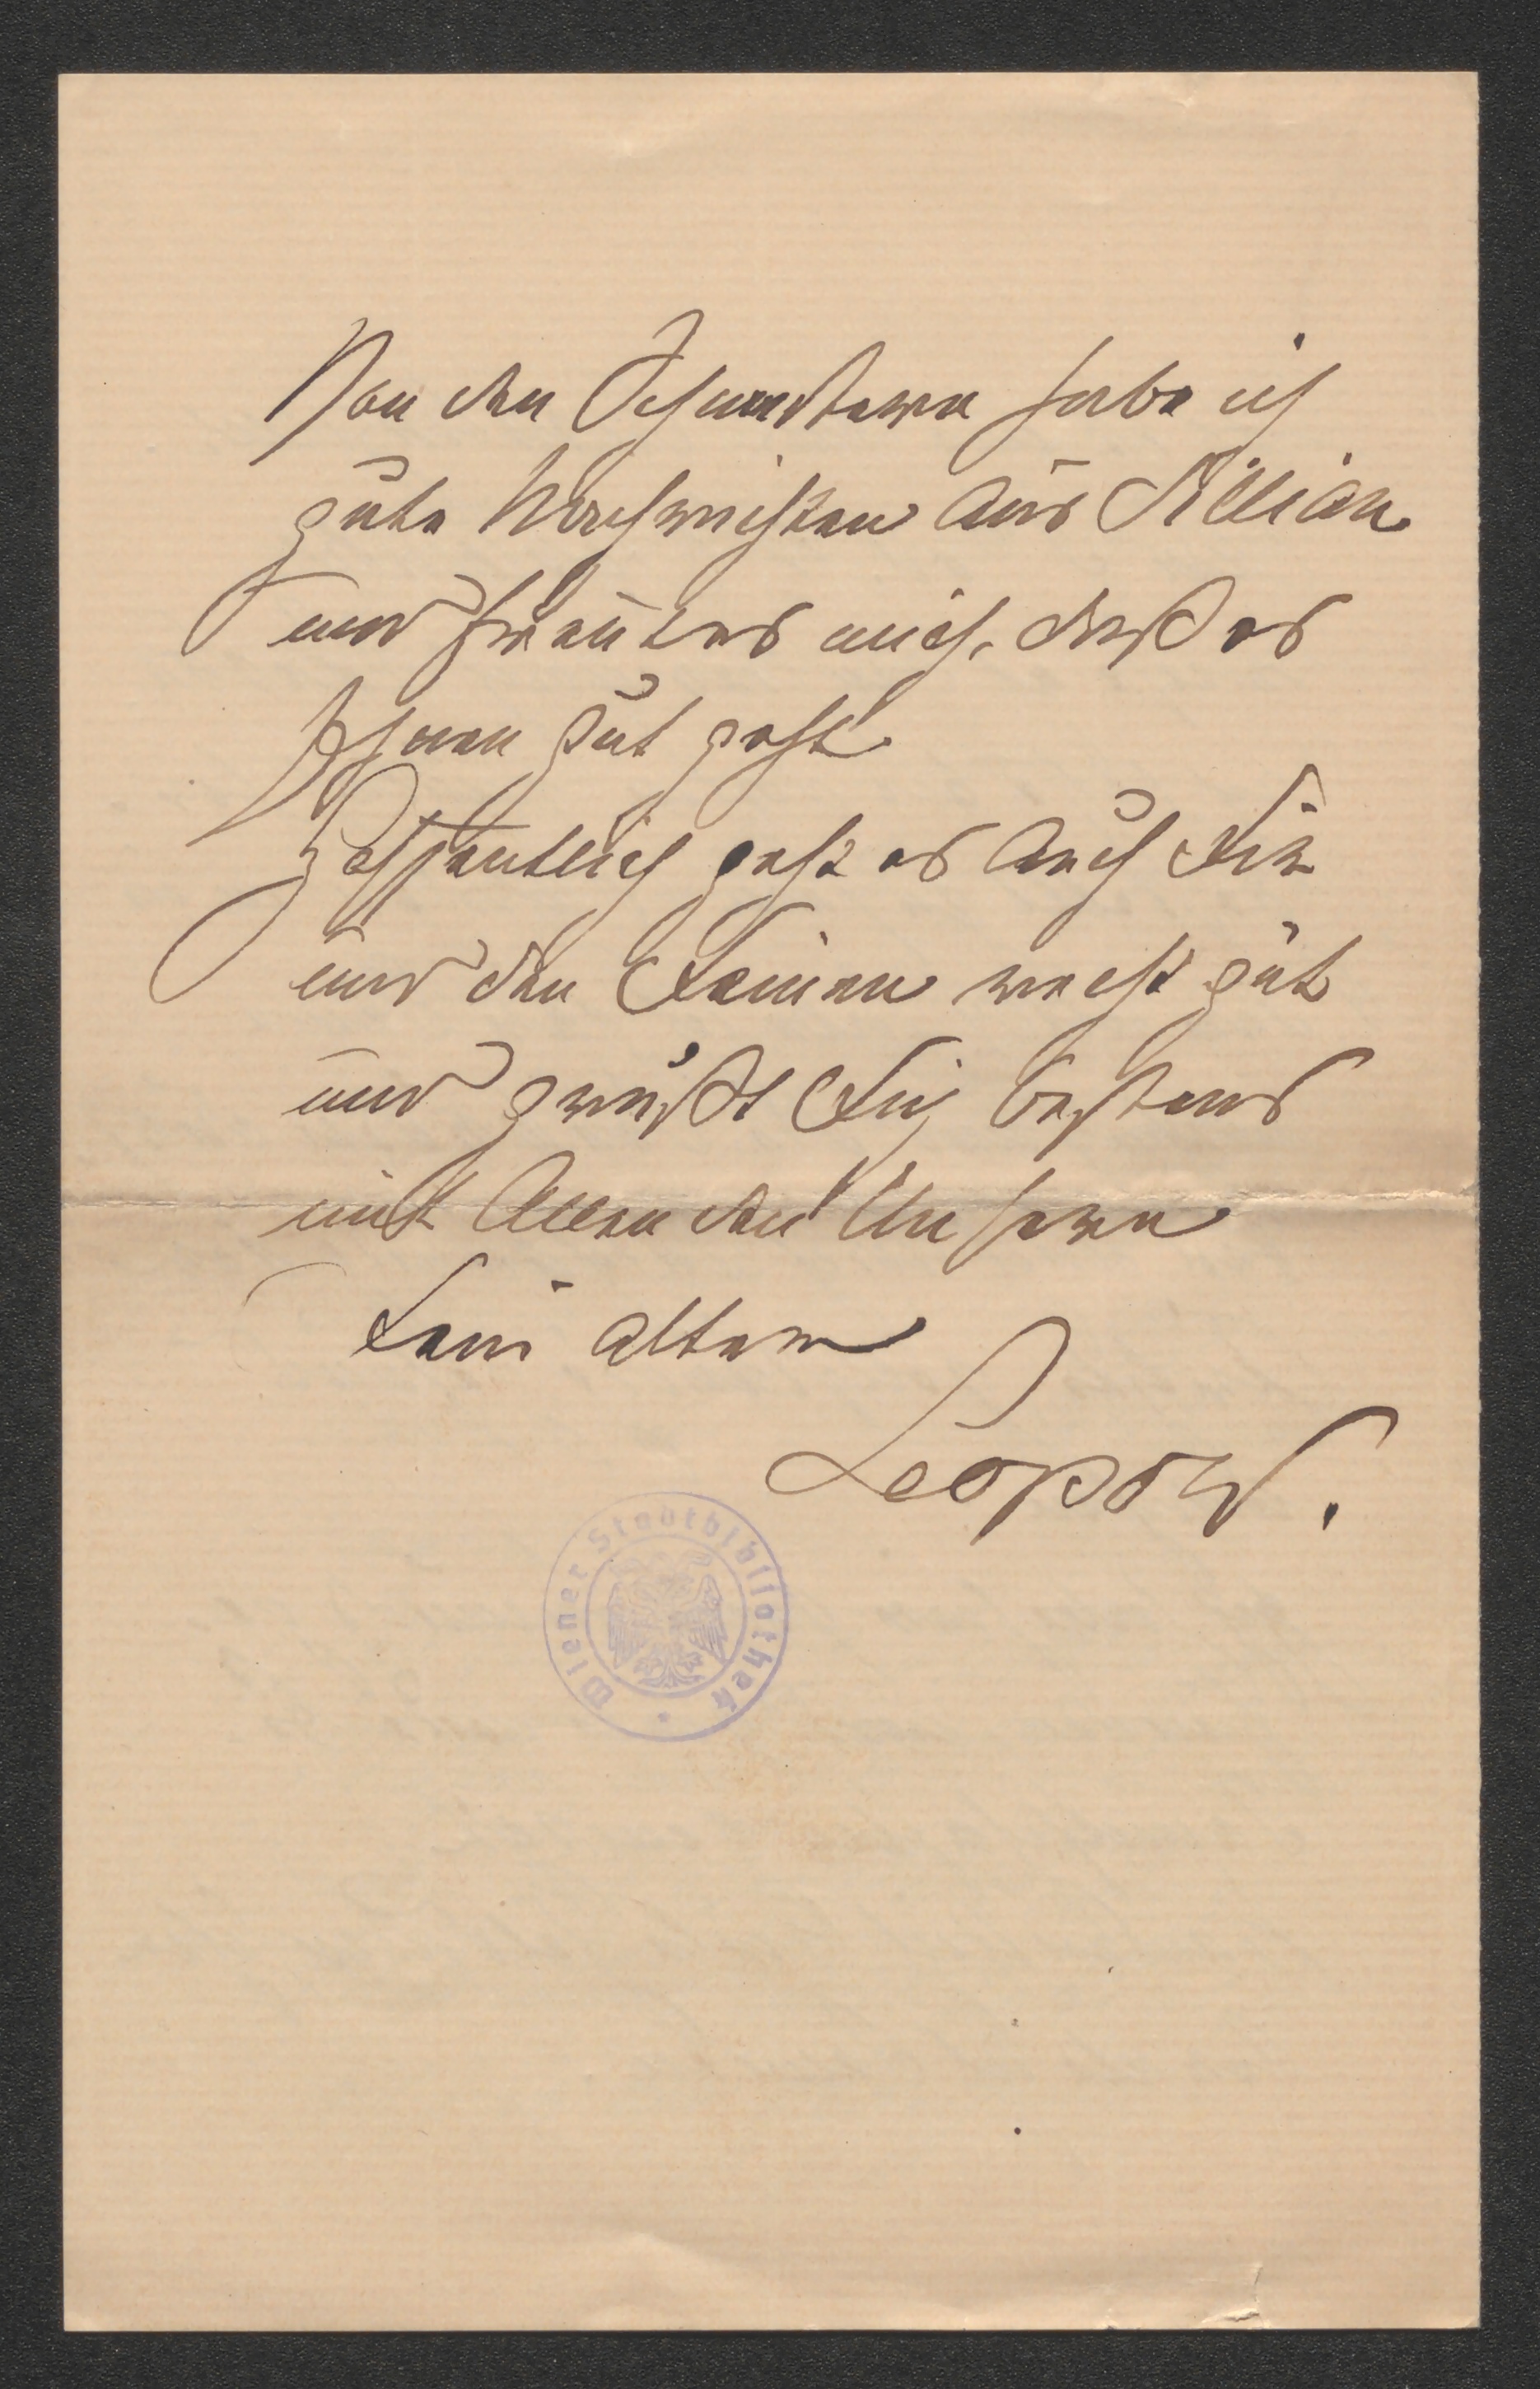 Von den Schwestern habe ich
gute Nachrichten aus Sillian
und freut es mich, daß es
Ihnen gut geht.
Hoffentlich geht es auch Dir
und den Deinen recht gut
und grüßt Dich bestens
mit Allen den Unsern
Dein alter
Leopold.
Wiener Stadtbibliothek